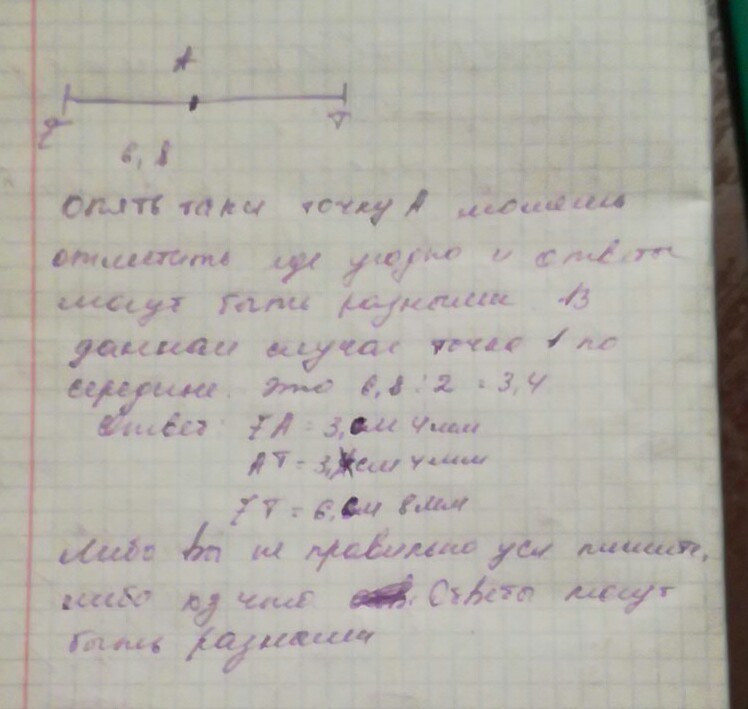 А
F Т
6,8
Опять таки точку А можешь
отметить где угодно и ответы
могут быть разными. В
данном случае точка по
середине. это 6,8 : 2 = 3,4
Ответ: FA = 3,см 4мм
АТ = 3, см 4мм
FT = 6,см 8мм
Либо вы не правильно усл пишите,
либо Ответы могут
быть разными